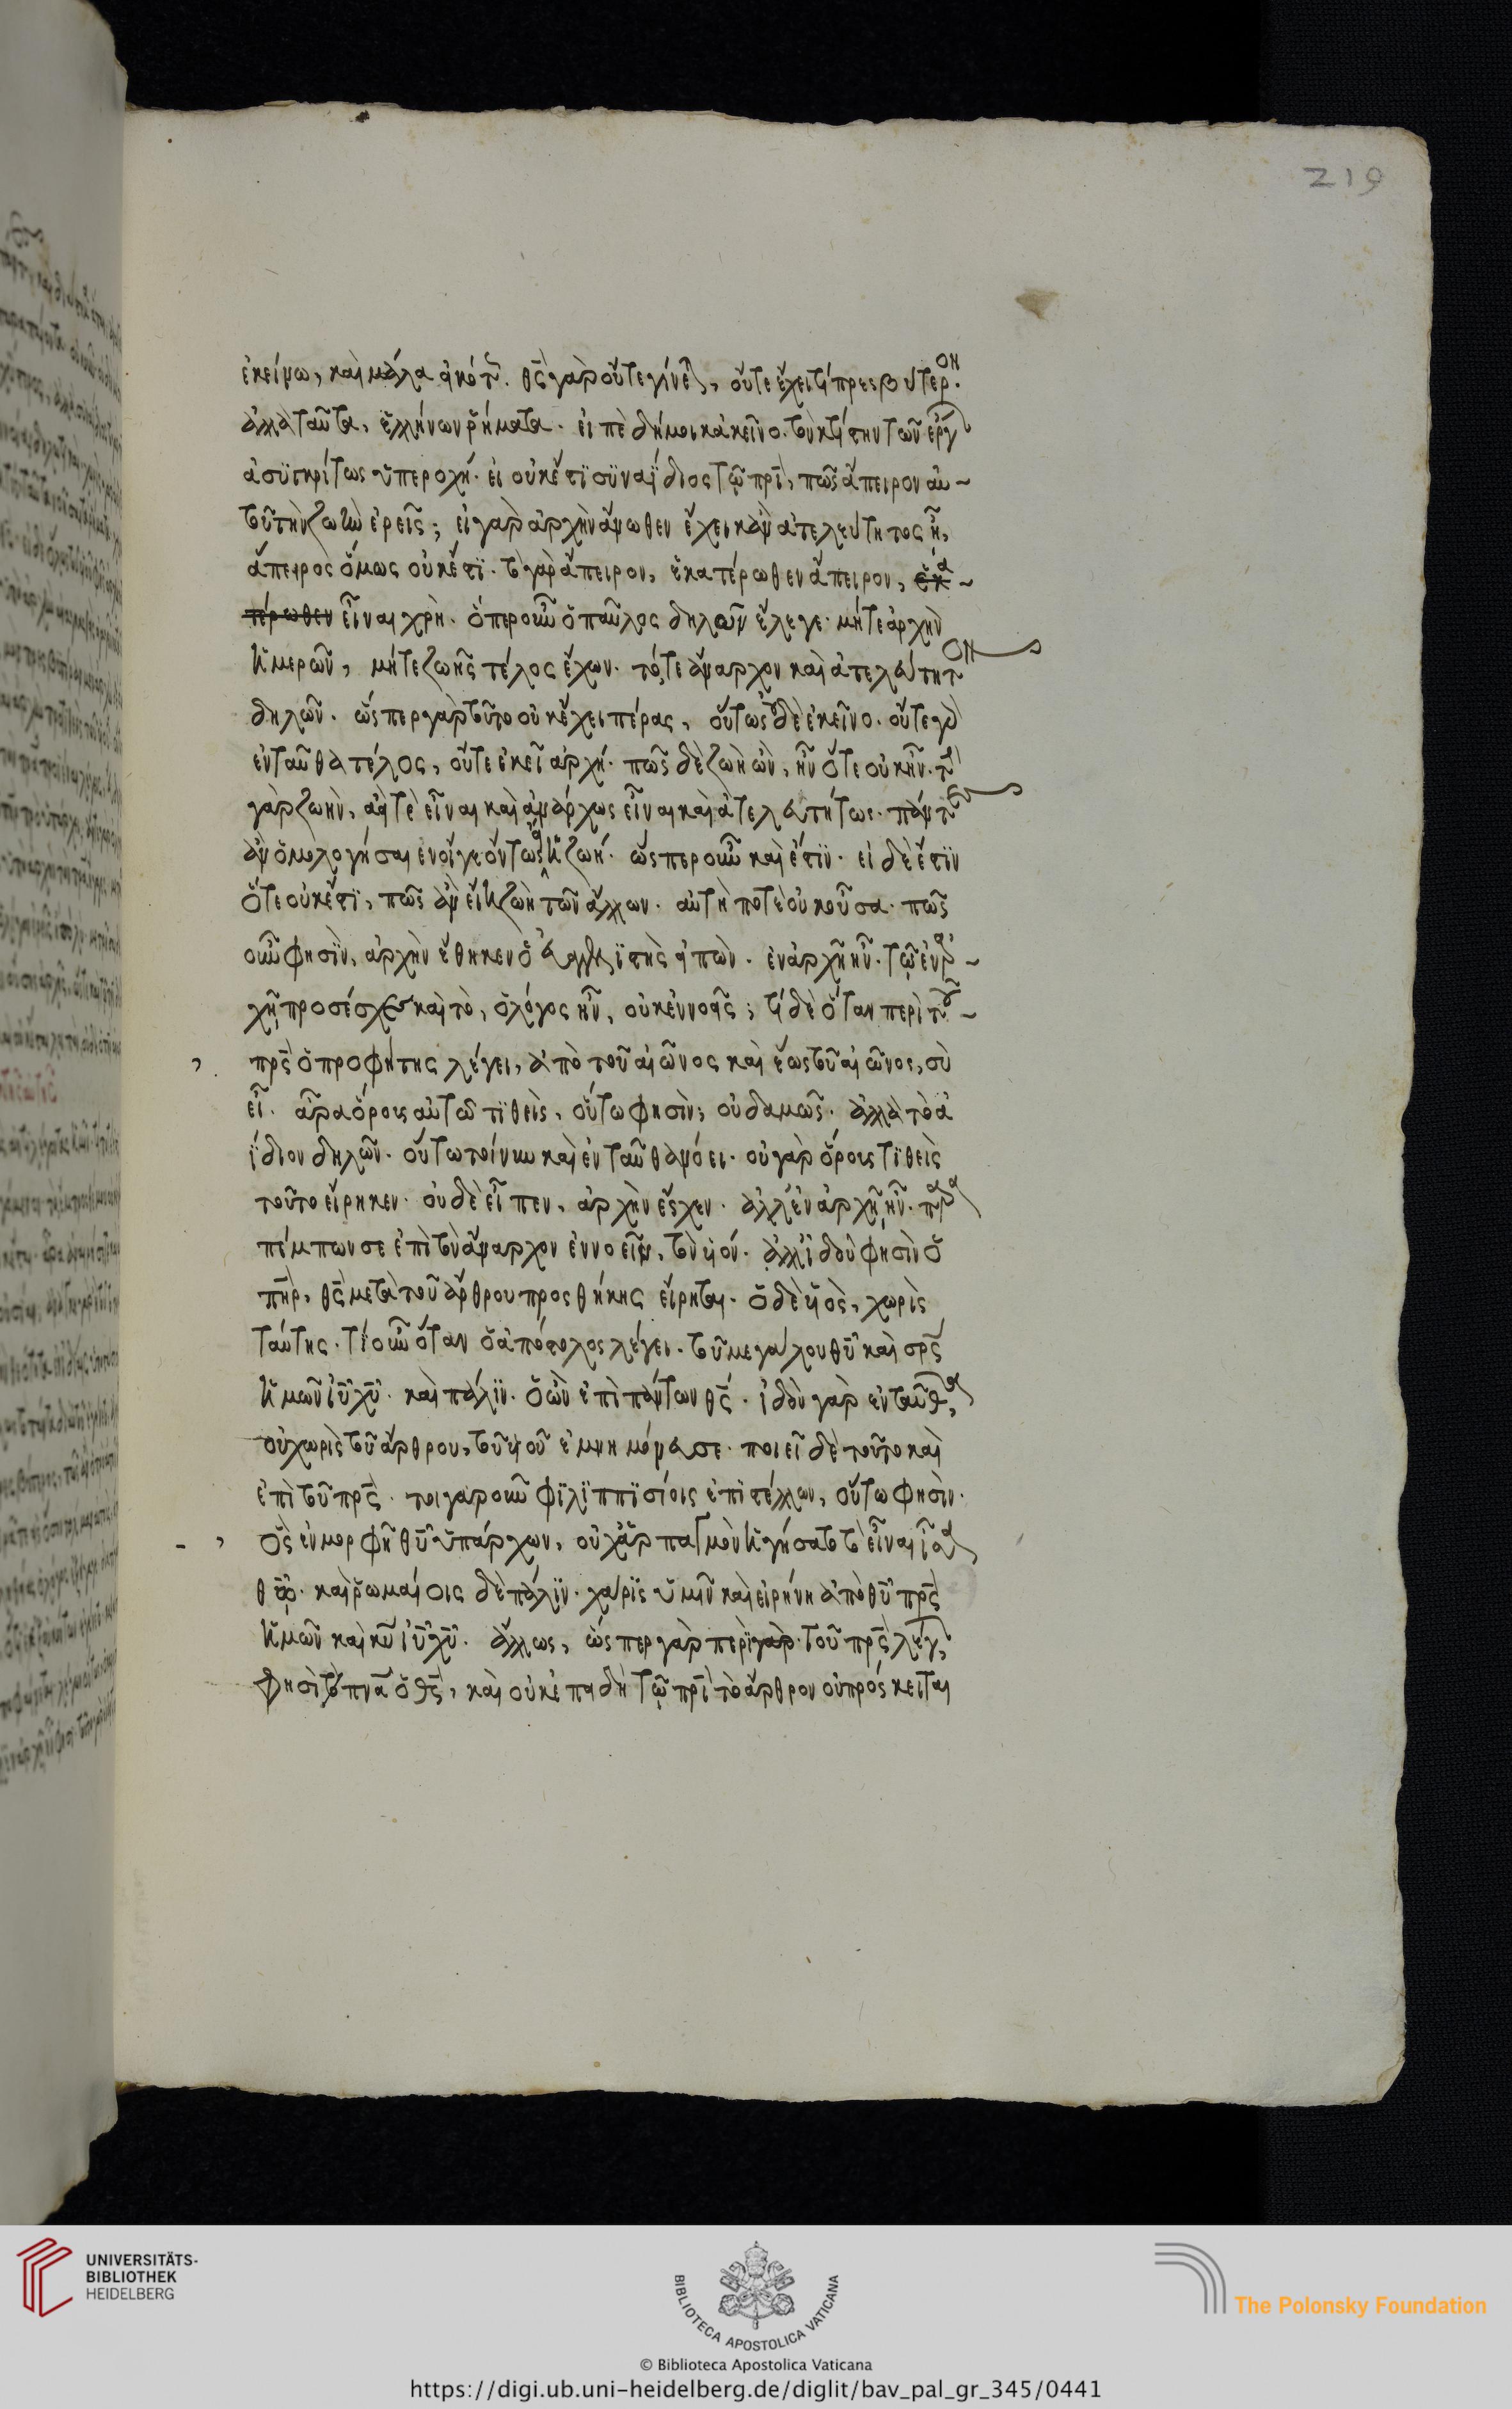 219
ἐκείνω, καὶ μάλα εἰκότως. θς γὰρ οὔτε γίνεται, οὔτε ἔχει τί πρεσβύτερον.
ἀλλὰ ταῦτα, ἑλλήνων ῥήματα. εἰπὲ δή μοι κἀκεῖνο. τὸν κτίστην τῶν ἔργων
ἀσϋγκρίτως ὑπεροχή. εἰ οὐκ ἔστϊ σϋναΐδιος τῷ πρϊ, πῶς ἄπειρον αὐ~
τοῦ τὴν ζωὴν ἐρεῖς; εἰ γὰρ ἀρχὴν ἄνωθεν ἔχει κἂν ἀτελεύτητος ἦ,
ἄπειρος ὅμως οὐκ ἔστϊ. τὸ γὰρ ἄπειρον, ἑκατέρωθεν ἄπειρον, ἑκα~
τέρωθεν εἶναι χρή. ὅπερ οὖν ὁ παῦλος δηλῶν ἔλεγε. μήτε ἀρχὴν
ἡμερῶν, μήτε ζωῆς τέλος ἔχων. τό, τε ἄναρχον καὶ ἀτελεύτητον
δηλῶν. ὥσπερ γὰρ τοῦτο οὐκ ἔχει πέρας, οὕτως οὐδὲ ἐκεῖνο. οὔτε γὰρ
ἐνταῦθα τέλος, οὔτε ἐκεῖ ἀρχή. πῶς δὲ ζωὴ ὢν, ἦν ὅτε οὐκ ἦν. τὴν
γὰρ ζωὴν, ἀεί τὲ εἶναι καὶ ἀνάρχως εἶναι καὶ ἀτελευτήτως. πάντως
ἂν ὁμολογήσαιεν οἵγε ὄντως ἡ ζωή. ὥσπερ οὖν καὶ ἔστϊν. εἰ δὲ ἔστϊν
ὅτε οὐκ ἔστϊ, πῶς ἂν εἴη ζωὴ τῶν ἄλλων. αὐτή ποτὲ οὐκ οὖσα. πῶς
οὖν φησϊν, ἀρχὴν ἔθηκεν ὁ εὐαγγελϊστὴς εἰπὼν. ἐν ἀρχῆ ἦν. τῷ ἐν ἀρ~
χῆ προσέσχες καὶ τὸ, ὁ λόγος ἦν, οὐκ ἐννοεῖς; τί δὲ ὅταν περὶ τοῦ~
πρς ὁ προφήτης λέγει, ἀπὸ τοῦ αἰῶνος καὶ ἕως τοῦ αἰῶνος, σὺ
εἶ. ἆρα ὅρους αὐτῶ τϊθεὶς, οὕτω φησὶν; οὐδαμῶς. ἀλλὰ τὸ ἀ
ΐδιον δηλῶν. οὕτω τοίνυν καὶ ἐνταῦθα νόει. οὐ γὰρ ὅρους τϊθεὶς
τοῦτο εἴρηκεν. οὐδὲ εἶπεν, ἀρχὴν ἔσχεν. ἀλλ' ἐν ἀρχῆ ἦν. παρα
πέμπων σε ἐπὶ τὸ ἄναρχον ἐννοεῖν, τὸν υἱόν. ἀλλ' ἰδοὺ φησὶν ὁ
πηρ, θς μετὰ τοῦ ἄρθρου προσθήκης εἴρηται. ὁ δὲ υἱὸς, χωρὶς
ταύτης. τί οὖν ὅταν ὁ ἀπόστολος λέγει. τοῦ μεγάλου θυ καὶ σρς
ἡμῶν ιυ χυ. καὶ πάλϊν. ὁ ὢν ἐπὶ πάντων θς. ἰδοὺ γὰρ ἐνταῦθα,
οὐ χωρὶς τοῦ ἄρθρου, τοῦ υἱοῦ ἐμνημόνευσε. ποιεῖ δὲ τοῦτο καὶ
ἐπὶ τοῦ πρς. τοιγαροῦν φϊλϊππϊσίοις ἐπϊστέλλων, οὕτω φησὶν.
ὃς ἐν μορφῆ θυ ὑπάρχων, οὐχ ἁρπαγμὸν ἡγήσατο τὸ εἶναι ἶσα
θω. καὶ ῥωμαίοις δὲ πάλϊν. χάρϊς ὑμῖν καὶ εἰρήνη ἀπὸ θυ πρς
ἡμῶν καὶ κυ ιυ χυ. ἄλλως, ὥσπερ γὰρ περὶ γὰρ τοῦ πρς λέγων,
φησὶ τό πνα ὁ θς, καὶ οὐκ ἐπειδὴ τῷ πρὶ τὸ ἄρθρον οὐ πρόσκειται
UNIVERSITÄTS-
BIBLIOTHEK
HEIDELBERG
BIBLIOTECA APOSTOLICA VATICANA
The Polonsky Foundation
© Biblioteca Apostolica Vaticana
https://digi.ub.uni-heidelberg.de/diglit/bav_pal_gr_345/0441